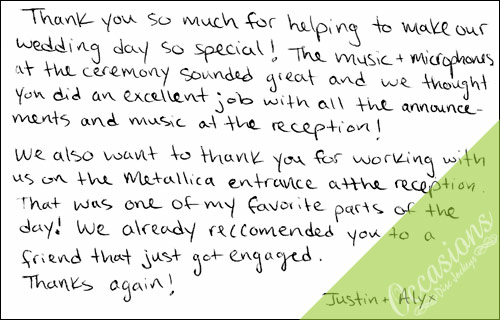 Thank you so much for helping to make our
wedding day so special! The music + microphones
at the ceremony sounded great and we thought
you did an excellent job with all the announce-
ments and music at the reception!
We also want to thank you for working with
us on the Metallica entrance at the reception.
That was one of my favorite parts of the
day! We already reccomended you to a
friend that just got engaged.
Thanks again!
Justin + Alyx
Occasions